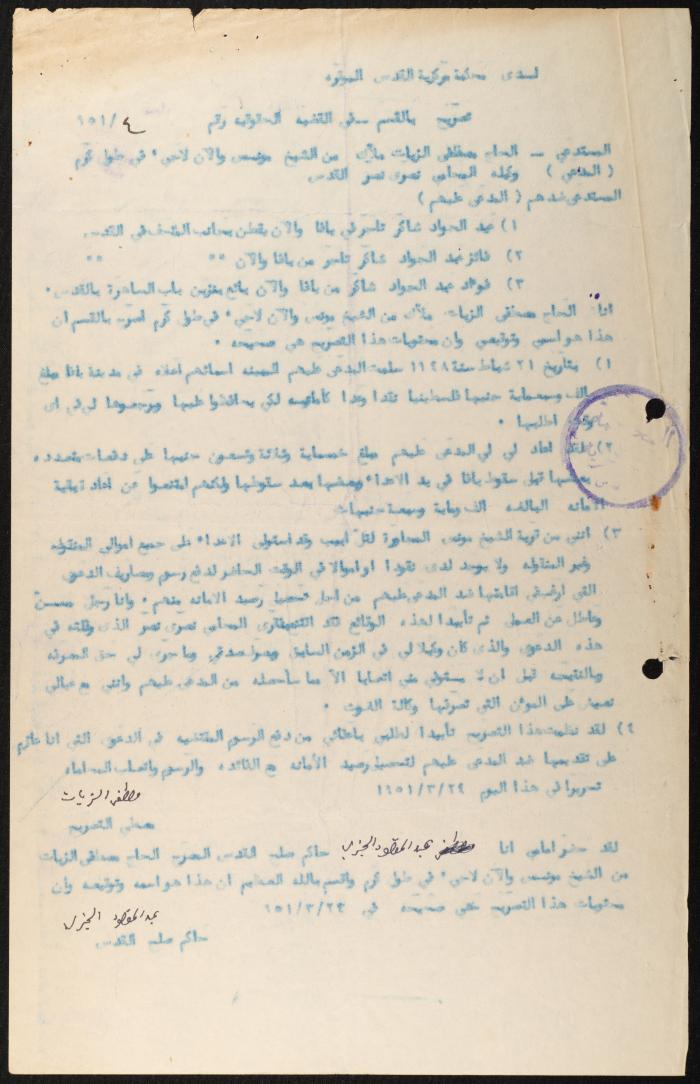 لدى محكمة مركزية القدس الموقره
تصريح بالقسم في القضيه الحقوقيه رقم ٤/١٥١
المستدعي - الحاج مصطفى الزيات ملاك من الشيخ مونس والآن لاجيء في طول كرم
( المدعي ) وكيله المحامي نصري نصر القدس
المستدعى ضدهم ( المدعى عليهم )
١) عبد الجواد شاكر تاجر في يافا والآن يقطن بجانب المتحف في القدس
٢) فائز عبد الجواد شاكر تاجر من يافا والآن " " " "
٣) فواد عبد الجواد شاكر من يافا والآن بائع بنزين باب الساهرة بالقدس .
انا الحاج مصطفى الزيات ملاك من الشيخ مونس والآن لاجيء في طول كرم اصرح بالقسم ان
هذا هو اسمي وتوقيعي وان محتويات هذا التصريح هي صحيحه .
١) بتاريخ ٢١ شباط سنة ١٩٤٨ سلمت المدعى عليهم المبينه اسمائهم اعلاه في مدينة يافا مبلغ
الف وسبعماية جنيها فلسطينيا نقدا وعدا كأمانه لكي يحافظوا عليها ويرجعوها لي في اي
وقت اطلبها .
٢) لقد اعاد لي المدعى عليهم مبلغ خمسماية وثلاثة وتسعون جنيها على دفعات متعدده
بعضها قبل سقوط يافا في يد الاعداء وبعضها بعد سقوطها ولكنهم امتنعوا عن اعادة بقية
الامانه البالغه الف وماية وسبعة جنيهات
٣) انني من قرية الشيخ مونس المجاورة لتل ابيب وقد استولى الاعداء على جميع اموالي المنقوله
وغير المنقوله ولا يوجد لدي نقودا او اموالا في الوقت الحاضر لدفع رسوم ومصاريف الدعوى
التي ارغب في اقامتها ضد المدعى عليهم من اجل تحصيل رصيد الامانه منهم . وانا رجل مسن
وعاطل عن العمل ثم تأييدا لهذه الوقائع فان المحامي نصري نصر الذي وكلته في
هذه الدعوى والذي كان وكيلا لي في الزمن السابق وبما جرى لي حق المعرفه
قبل ان لا يستوفي مني اتعابا الا مما سأحصله من المدعى عليهم وانني مع عيالي
نعيش على المؤن التي تصرفها وكالة الغوث .
٤) لقد نظمت هذا التصريح تأييدا لطلبي باعفائي من دفع الرسوم المقتضيه في الدعوى التي انا عازم
على تقديمها ضد المدعى عليهم لتحصيل رصيد الامانه مع الفائده والرسوم واتعاب المحاماه
تحريرا في هذا اليوم ١٩٥١/٣/٢٩
مصطفى الزيات
معطي التصريح
لقد حضر امامي انا عبد المقصود الخيري حاكم صلح القدس المصرح الحاج مصطفى الزيات
من الشيخ مونس والآن لاجيء في طول كرم واقسم بالله العظيم ان هذا هو اسمه وتوقيعه وان
محتويات هذا التصريح هي صحيحه في
عبد المقصود الخيري
حاكم صلح القدس